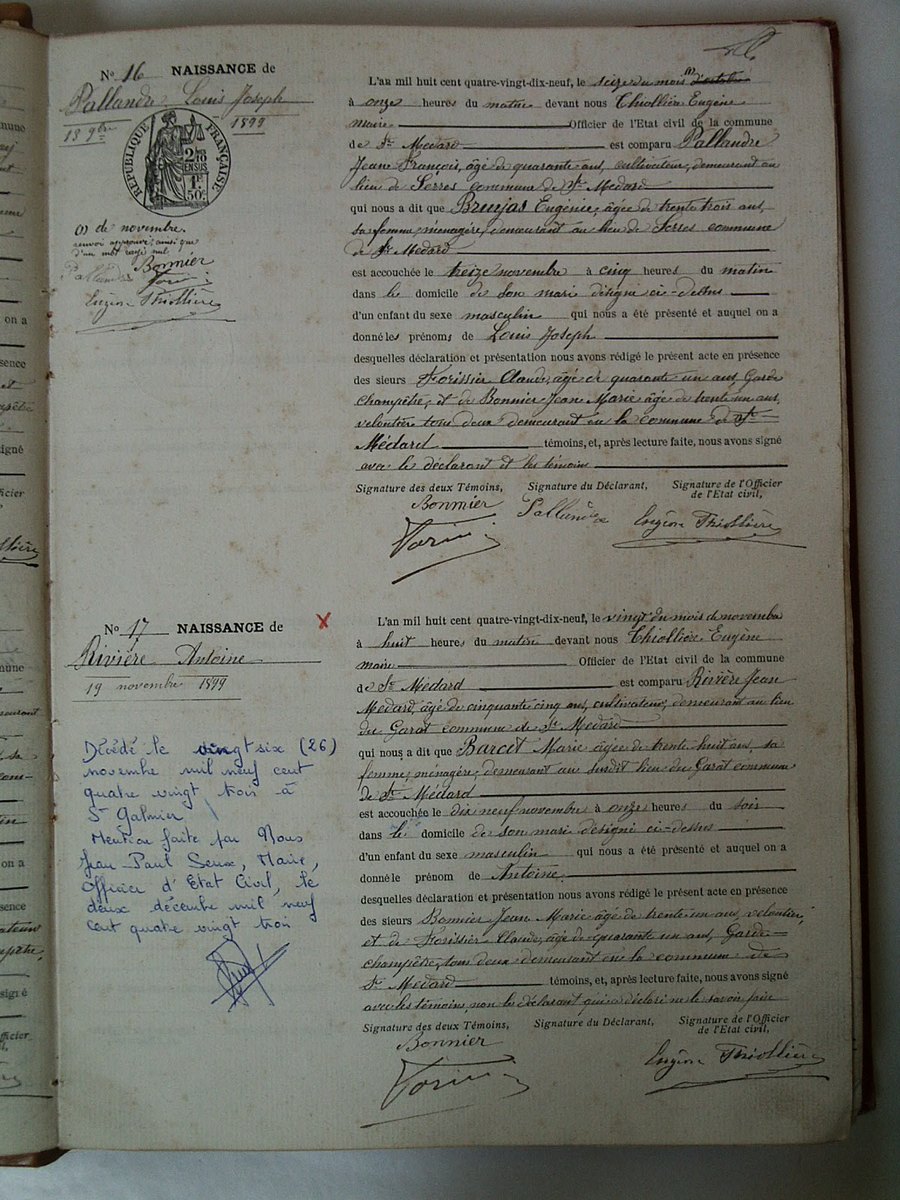 No 16 NAISSANCE de
Pallandre Louis Joseph
13 9bre 1899
RÉPUBLIQUE FRANÇAISE
2/10
EN SUS
1F
50c
(1) de novembre.
renvoi approuvé, ainsi que
d'un mot rayé nul.
Bonnier
Pallandre
Eugène Thiollière
L'an mil huit cent quatre-vingt-dix-neuf, le seize du mois (1) d'octobre
à onze heures du matin devant nous Thiollière Eugène
maire Officier de l'Etat civil de la commune
de St Médard est comparu Pallandre
Jean François, âgé de quarante ans, cultivateur, demeurant au
lieu de Serres commune de St Médard
qui nous a dit que Brujas Eugénie, âgée de trente trois ans,
sa femme, ménagère, demeurant au lieu de Serres commune
de St Médard
est accouchée le treize novembre à cinq heures du matin
dans le domicile de son mari désigné ci-dessus
d'un enfant du sexe masculin qui nous a été présenté et auquel on a
donné les prénoms de Louis Joseph
desquelles déclaration et présentation nous avons rédigé le présent acte en présence
des sieurs Forissier Claude, âgé de quarante un ans, Garde
champêtre, et de Bonnier Jean Marie âgé de trente un ans,
veloutier tous deux demeurant en la commune de St
Médard témoins, et, après lecture faite, nous avons signé
avec le déclarant et les témoins
Signature des deux Témoins, Signature du Déclarant, Signature de l'Officier
de l'Etat civil,
Bonnier Pallandre Eugène Thiollière
No 17 NAISSANCE de
Rivière Antoine
19 novembre 1899
X
Décédé le vingt six (26)
novembre mil neuf cent
quatre vingt trois à
St Galmier
Mention faite par Nous
Jean Paul Seux, Maire,
Officier d'Etat Civil, le
deux décembre mil neuf
cent quatre vingt trois
L'an mil huit cent quatre-vingt-dix-neuf, le vingt du mois de novembre
à huit heures du matin devant nous Thiollière Eugène
maire Officier de l'Etat civil de la commune
de St Médard est comparu Rivière Jean
Médard, âgé de cinquante cinq ans, cultivateur, demeurant au lieu
du Garat commune de St Médard
qui nous a dit que Barcet Marie âgée de trente huit ans, sa
femme, ménagère, demeurant au susdit lieu du Garat commune
de St Médard
est accouchée le dix neuf novembre à onze heures du soir
dans le domicile de son mari désigné ci-dessus
d'un enfant du sexe masculin qui nous a été présenté et auquel on a
donné le prénom de Antoine,
desquelles déclaration et présentation nous avons rédigé le présent acte en présence
des sieurs Bonnier Jean Marie âgé de trente un ans, veloutier,
et de Forissier Claude, âgé de quarante un ans, Garde
champêtre, tous deux demeurant en la commune de
St Médard témoins, et, après lecture faite, nous avons signé
avec les témoins, non le déclarant qui a déclaré ne le savoir faire
Signature des deux Témoins, Signature du Déclarant, Signature de l'Officier
de l'Etat civil,
Bonnier Eugène Thiollière